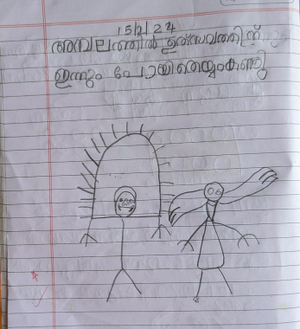 15/2/24
അമ്പലത്തിൽ ഉത്സവത്തിന്
ഇന്നും പോയി തെയ്യം കണ്ടു